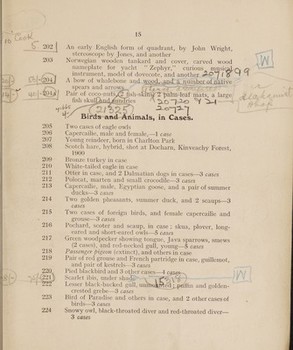 15
to Cook
202 An early English form of quadrant, by John Wright,
stereoscope by Jones, and another
203 Norwegian wooden tankard and cover, carved wood
nameplate for yacht "Zephyr," curious musical
instrument, model of dovecote, and another
204 A bow of whalebone and wood, and a number of native
spears and arrows
Pair of coco-nuts, fish-skins, palm-leaf mats, a large
fish skull and sundries
21825
20720
20727
Birds and Animals, in Cases.
205 Two cases of eagle owls
206 Capercailie, male and female,—1 case
207 Young reindeer, born in Charlton Park
208 Scotch hare, hybrid, shot at Docharn, Kinveachy Forest,
1900
209 Bronze turkey in case
210 White-tailed eagle in case
211 Otter in case, and 2 Dalmatian dogs in cases—3 cases
212 Polecat, marten and small crocodile—3 cases
213 Capercailie, male, Egyptian goose, and a pair of summer
ducks—3 cases
214 Two golden pheasants, summer duck, and 2 scaups—3
cases
215 Two cases of foreign birds, and female capercailie and
grouse—3 cases
216 Pochard, scoter and scarp, in case; skua, plover, long-
eared and short-eared owls—5 cases
217 Green woodpecker showing tongue, Java sparrows, smews
(2 cases), and red-necked gull, young—5 cases
218 Passenger Pigeon (extinct), and others in case
219 Pair of red grouse and French partridge in case, guillemot,
and pair of kestrels—3 cases
220 Pied blackbird and 3 other cases—4 cases
221 Scarlet ibis, under shade
222 Lesser black-backed gull, puffin and golden-
crested grebe—3 cases
223 Bird of Paradise and others in case, and 2 other cases of
birds—3 cases
224 Snowy owl, black-throated diver and red-throated diver—
3 cases